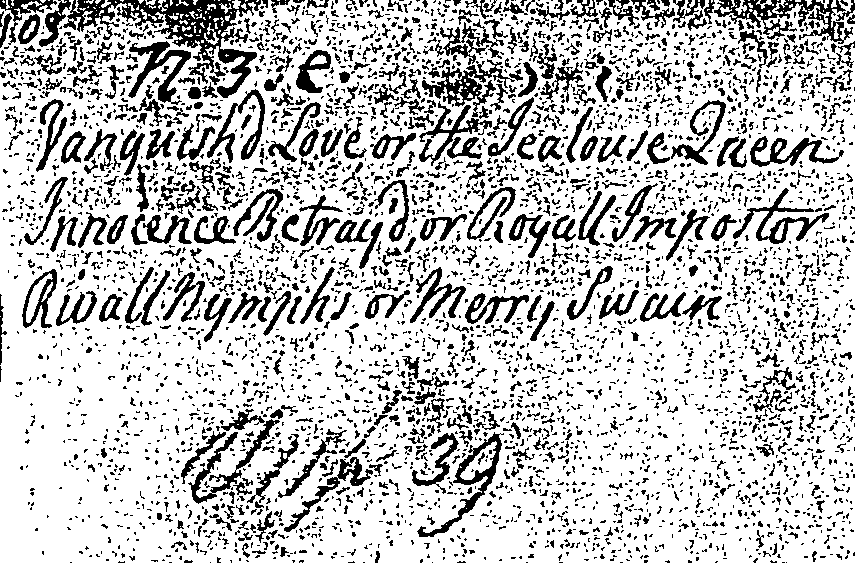 103
N. 3. e.
Vanquish'd Love, or, the Jealouse Queen
Innocence Betray'd, or Royall Impostor
Rivall Nymphs, or Merry Swain
39